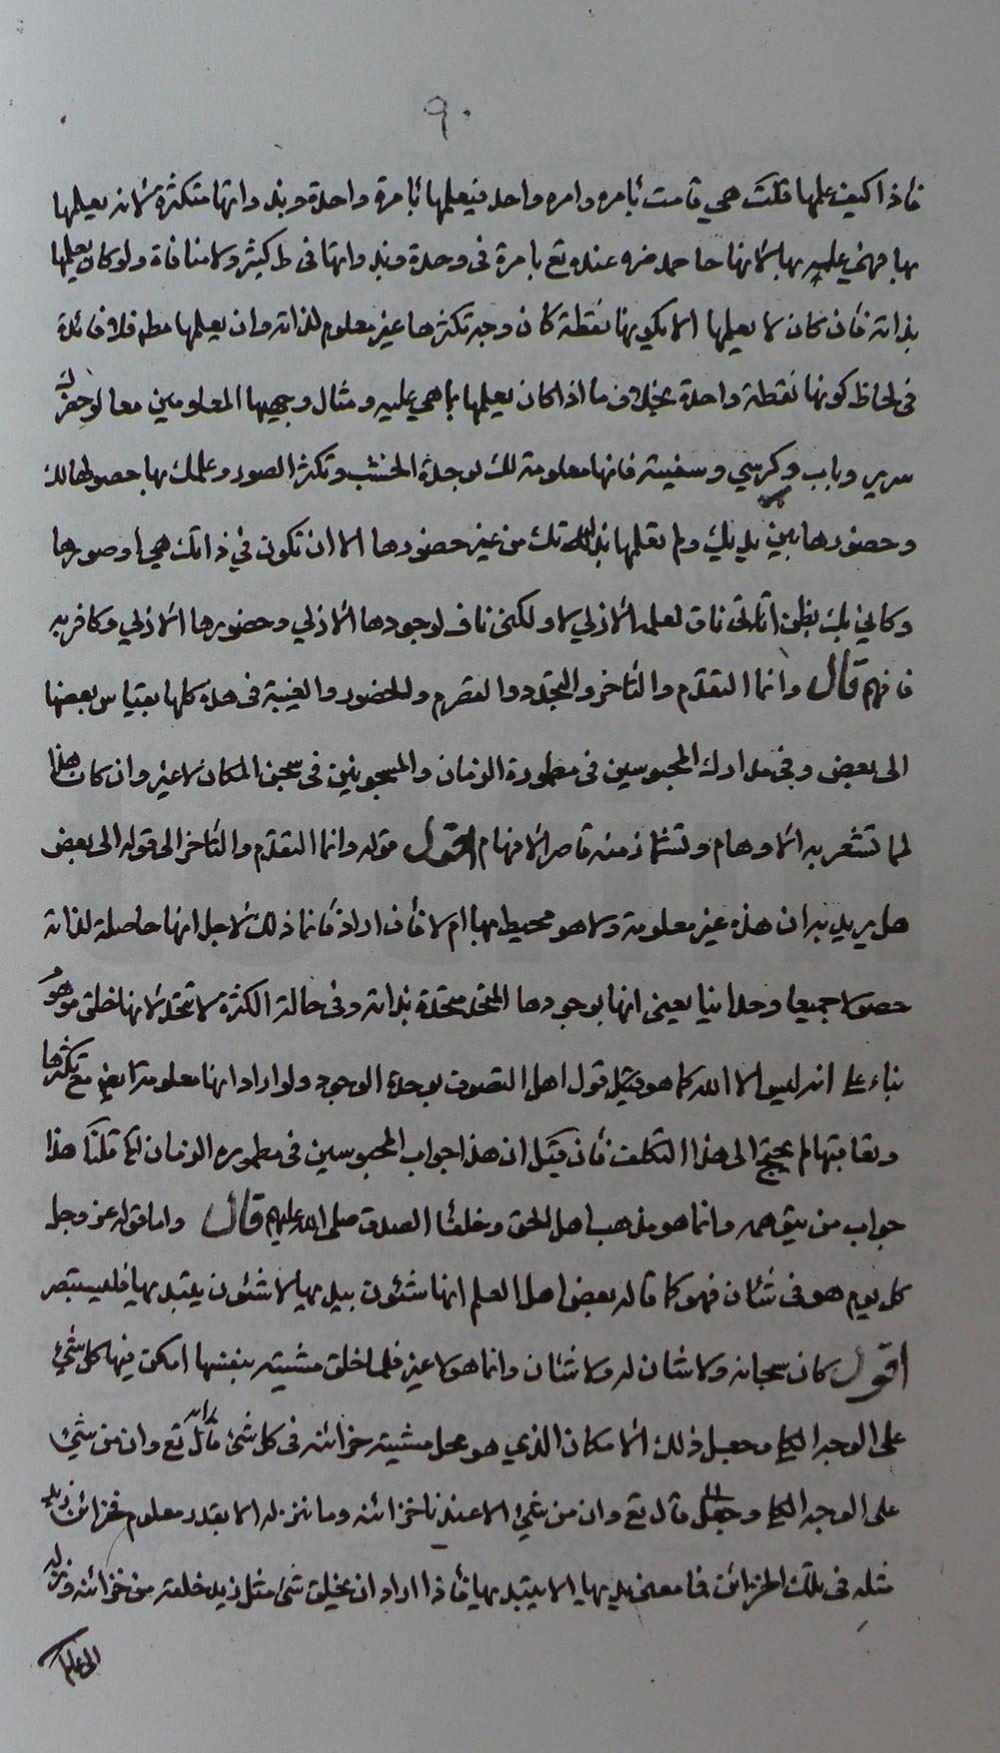 ٩٠
فاذا كيف علمها قلت هي قامت بامره وامره واحد فيعلمها بامره واحدة وبذواتها متكثرة لانه يعلمها
بها فهي علمه بها لانها حاضرة عنده تع بامره في وحدة وبذواتها في كثير ولا منافاة ولو كان يعلمها
بذاته فان كان لا يعلمها الا بكونها نقطة كان وجه تكثرها غير معلوم لذاته وان يعلمها مطه فلا فائدة
في لحاظ كونها نقطة واحدة بخلاف ما اذا كان يعلمها بما هي عليه ومثال وجهيها المعلومين معا لو حضرك
سرير وباب وكرسي وسفينة فانها معلومة لك بوحدة الخشب وتكثر الصور وعلمك بها حصولها لك
وحضورها بين يديك ولم تعلمها بذاتك من غير حضورها الا ان تكون في ذاتك هي او صورها
وكاني بك تظن انني ناف لعلمه الازلي لا ولكني ناف لوجودها الازلي وحضورها الازلي وكافر به
فافهم قال وانما التقدم والتاخر والتجدد والتصرم والحضور والغيبة في هذه كلها بقياس بعضها
الى بعض وفي مدارك المحبوسين في مطمورة الزمان والمسجونين في سجن المكان لا غير وان كان هذا
لما تستغربه الاوهام وتشمئز منه قاصر الافهام اقول قوله وانما التقدم والتاخر الى قوله الى بعض
هل يريد به ان هذه غير معلومة ولا هو محيط بها ام لا فان اراد فانما ذلك لاجل انها حاصلة لذاته
حصولا جمعيا وحدانيا يعني انها بوجودها المتحد متحدة بذاته وفي حالة الكثرة لا تتحد لانها خلق موهوم
بناء على انه ليس الا الله كما هو قول اهل التصوف بوحدة الوجود ولو اراد انها معلومة ايضا مع تكثرها
وتعاقبها لم يحتج الى هذا التكلف فان قيل ان هذا جواب المحبوسين في مطمورة الزمان قلنا هذا
جواب من يتوهمه وانما هو مذهب اهل الحق وخلفاء الصدق صلى الله عليهم قال واما قوله عز وجل
كل يوم هو في شان فهو كما قاله بعض اهل العلم انها شئون يبديها لا شئون يبتديها فليستبصر
اقول كان سبحانه ولا شان له ولا شان وانما هو لا غير فلما خلق مشيته بنفسها امكن فيها كل شيء
على الوجه الكلي وجعل ذلك الامكان الذي هو محل مشيته خزائنه في كل شئ قال تع وان من شيء
على الوجه الكلي وجعل قال تع وان من شيء الا عندنا خزائنه وما ننزله الا بقدر معلوم فخزائن زيد
مثله في تلك الخزائن فما معنى يبديها الا يبتديها فاذا اراد ان يخلق شئ مثل زيد خلقه من خزائنه ونزله
الى عالم